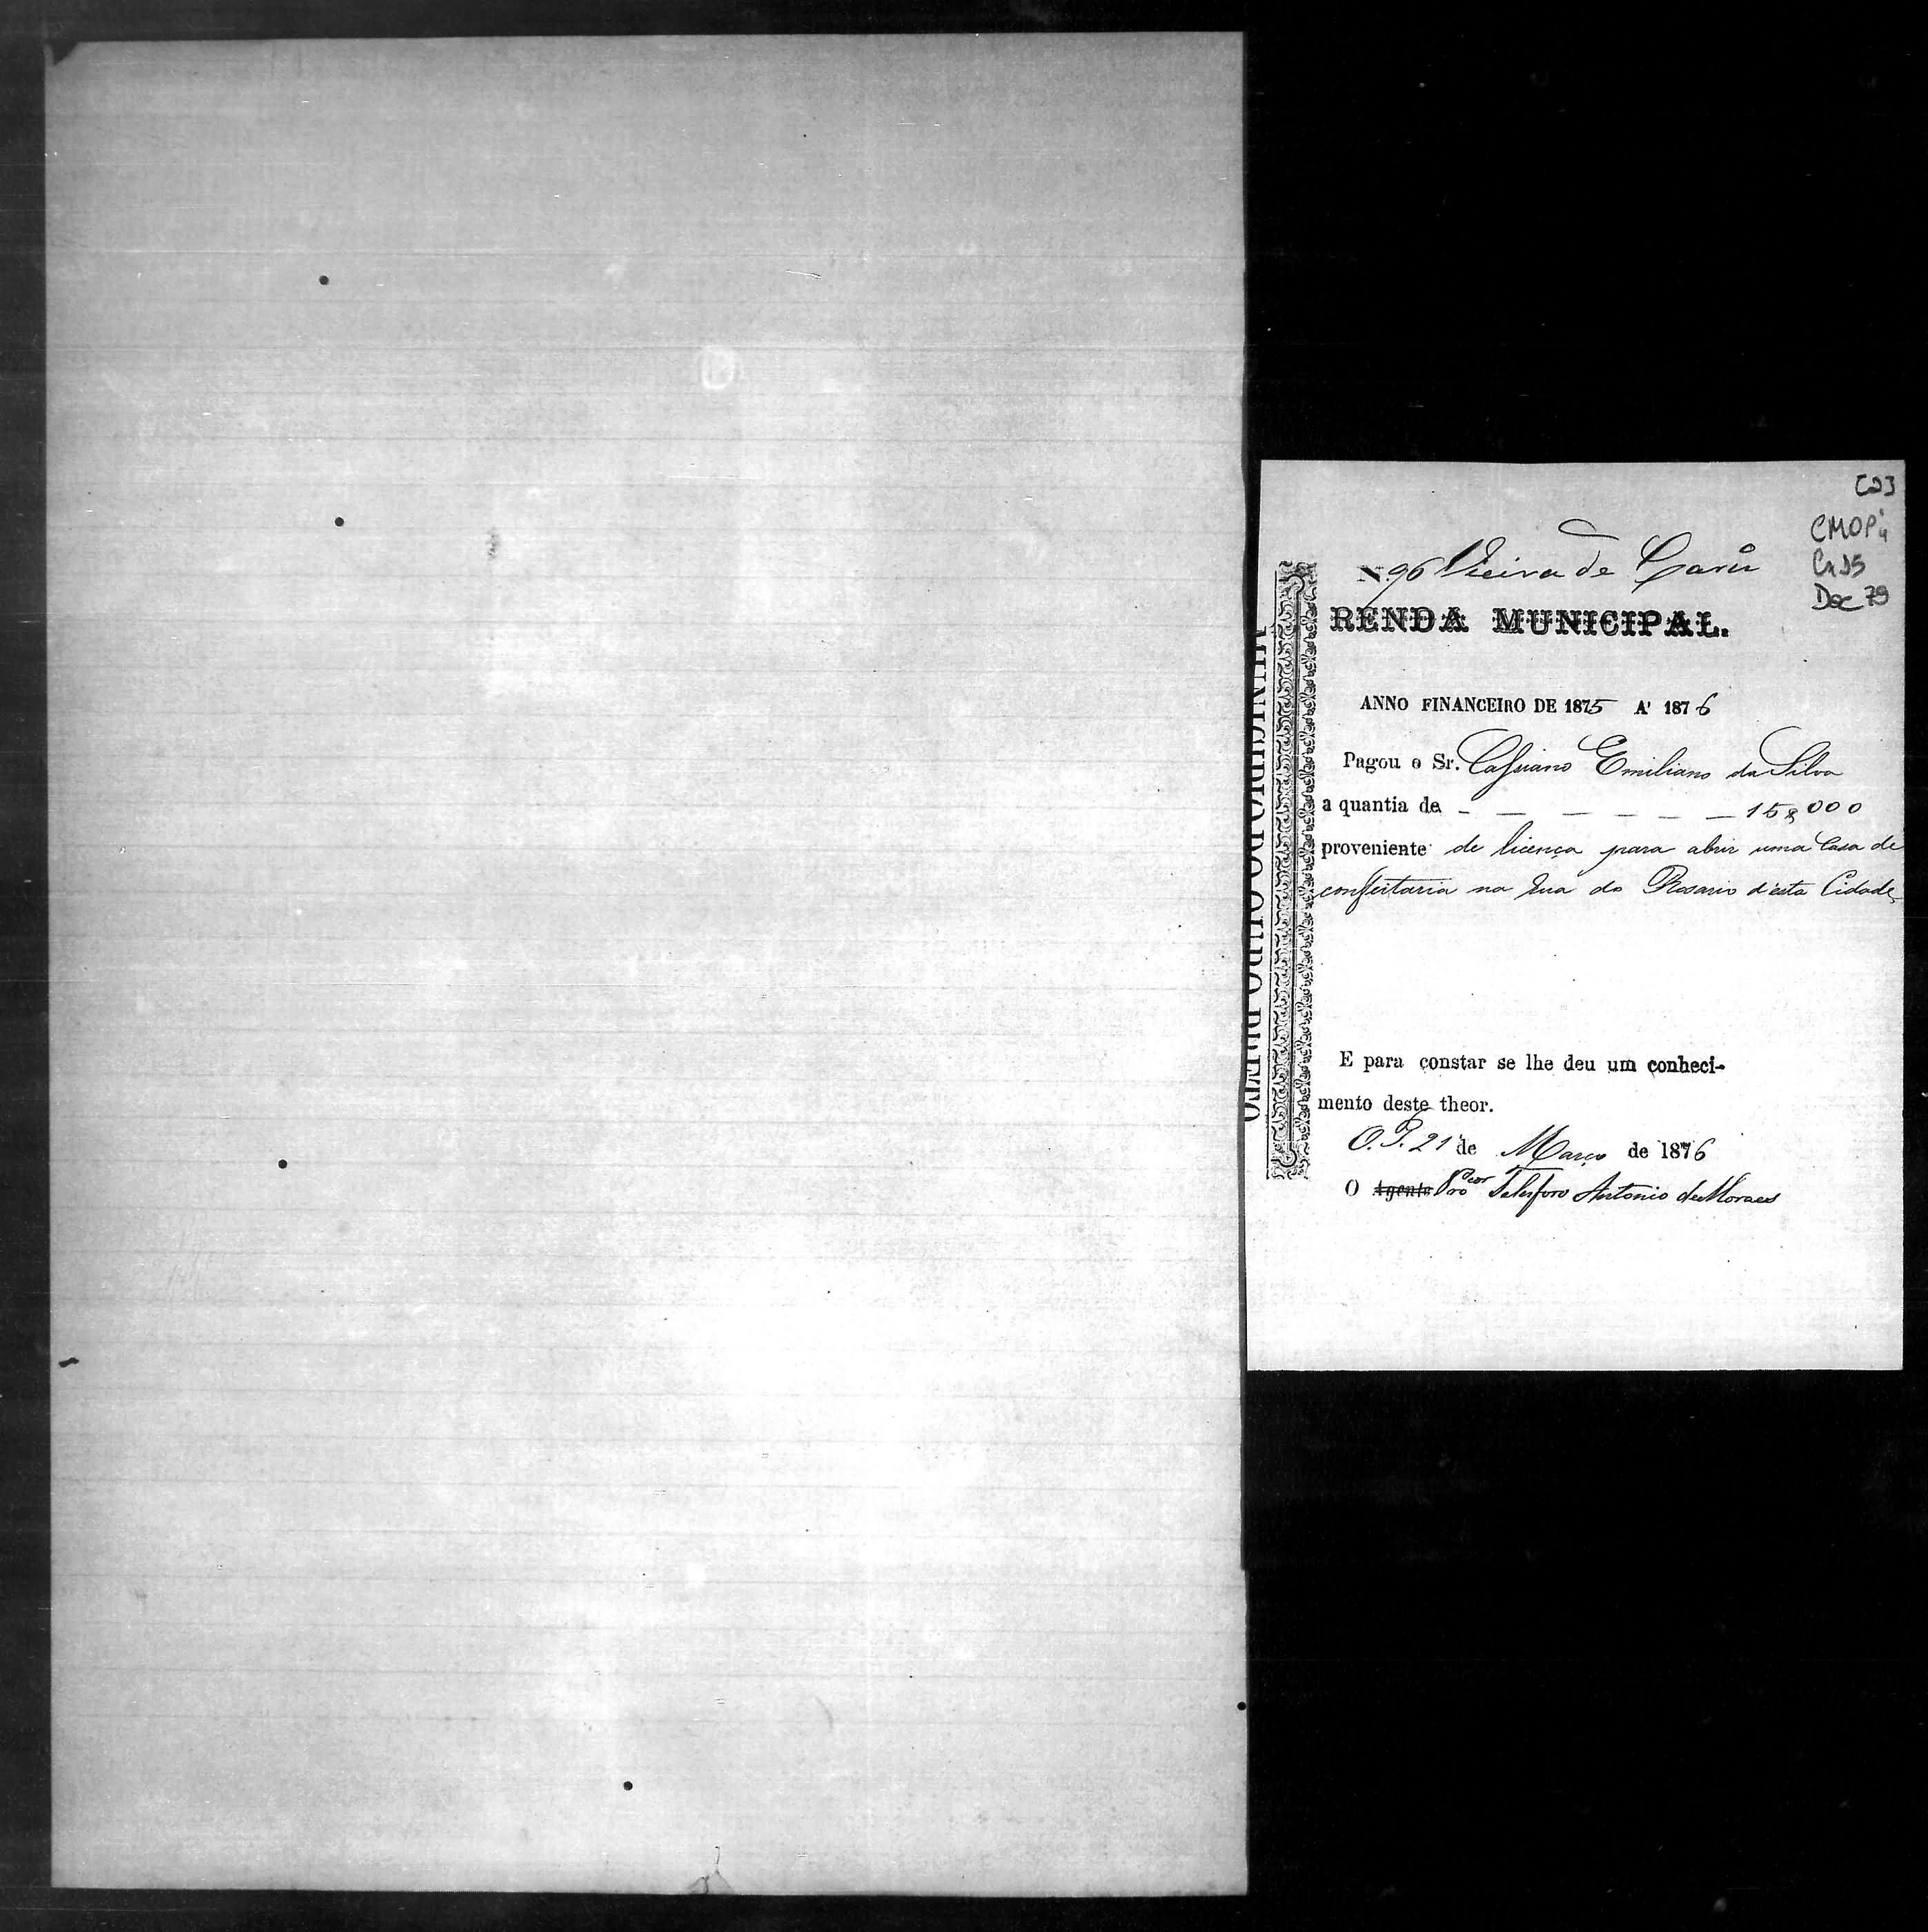 [2]
CMOP
Cx 15
Doc 79
N. 96 Vieira de
RENDA MUNICIPAL.
ANNO FINANCEIRO DE 1875 A' 1876
Pagou o Sr. Cassiano Emiliano da Silva
a quantia de - - - - - - 15$000
proveniente de licença para abrir uma Casa de
confeitaria na Rua do Rosario d'esta Cidade,
E para constar se lhe deu um conheci-
mento deste theor.
O. P. 21 de Março de 1876
O Agente Pro^dor Telesforo Antonio de Moraes
MUNICIPIO DO OURO PRETO